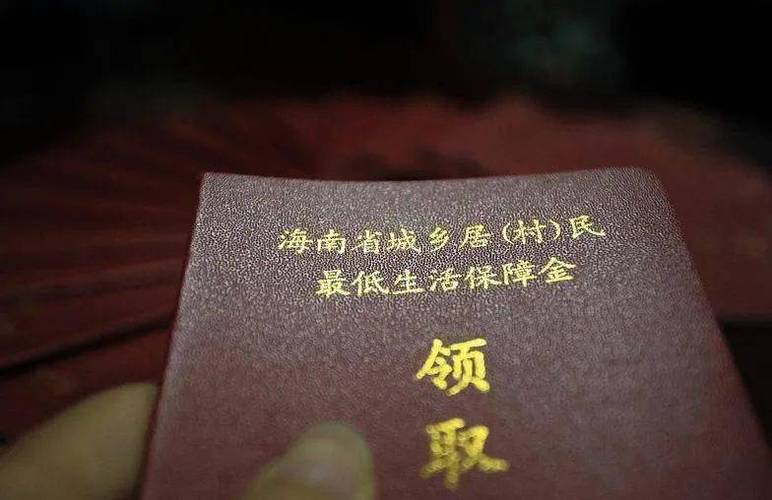 海南省城乡居(村)民
最低生活保障金
领
取